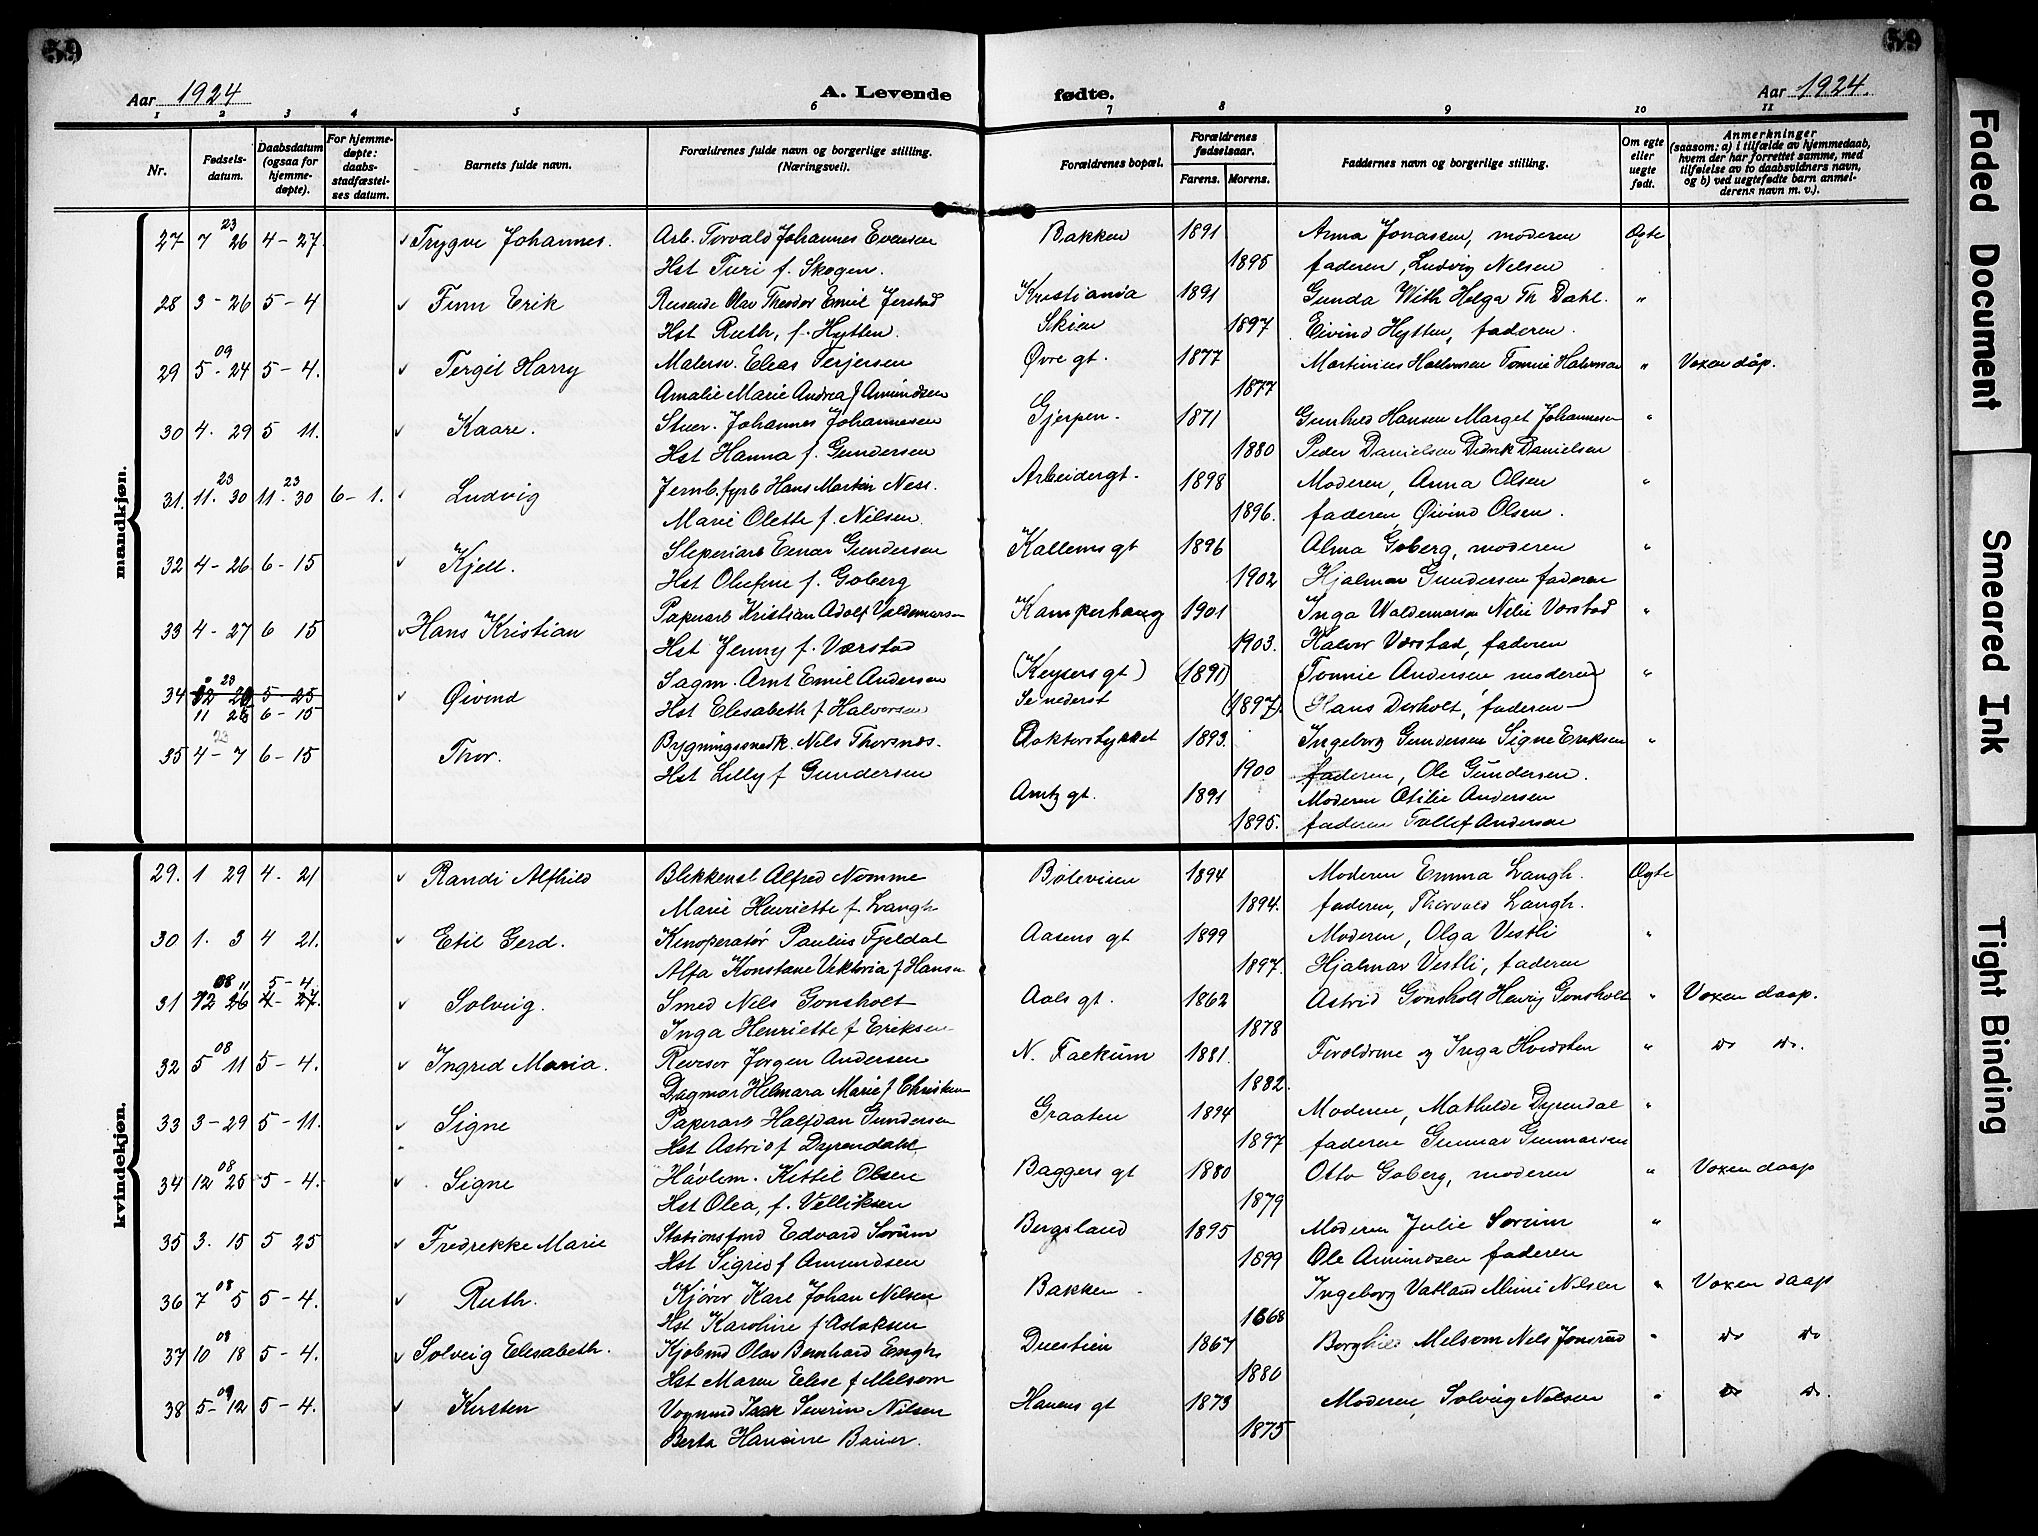 59
59
Aar 1924
A. Levende
fødte.
Aar 1924.
1 2 3 4 5 6 7 8 9 10 11
Nr.
Fødsels-
datum.
Daabsdatum
(ogsaa for
hjemme-
døpte).
For hjemme-
døpte:
daabs-
stadfæstel-
ses datum.
Barnets fulde navn.
Forældrenes fulde navn og borgerlige stilling.
(Næringsvei).
Forældrenes bopæl.
Forældrenes
fødselsaar.
Farens. Morens.
Faddernes navn og borgerlige stilling.
Om egte
eller
uegte
født.
Anmerkninger
(saasom: a) i tilfælde av hjemmedaab,
hvem der har forrettet samme, med
tilføielse av to daabsvidners navn,
og b) ved uegtefødte barn anmel-
derens navn m. v.).
mandkjøn.
27 7 23 26 4-27. Trygve Johannes. Arb. Torvald Johannes Evensen Bakken 1891 Anna Jonassen, moderen Ægte
Hst Turi f. Skogen. 1895 faderen, Ludvig Nelsen
28 3-26 5-4 Finn Erik Reisende Olav Theodor Emil Jerstad Kristiania 1891 Gunda With Helga Th Dahl. "
Hst Ruth, f. Hytten. Skien 1897 Eivind Hytten, faderen.
29 5 09 24 5-4. Tergil Harry Malersv. Elias Terjersen Øvre gt. 1877 Martinius Halvorsen Tomine Halvorsen " Voxen dåp.
Amalie Marie Andrea f Amundsen 1877
30 4. 29 5 11. Kaare. Stuer. Johannes Johannesen Gjerpen. 1871 Gunhild Hansen Marget Johannesen "
Hst Hanna f. Gundersen 1880 Peder Danielsen Didrik Danielsen
31. 11. 23 30 11. 23 30 6-1. Ludvig Jernb. fyrb Hans Martin Ness. Arbeidergt. 1898 Moderen, Anna Olsen "
Marie Olette f. Nilsen. 1896. faderen, Øivind Olsen.
32 4-26 6-15 Kjell. Sleperiarb Einar Gundersen Kallemsgt 1896 Alma Goberg, moderen "
Hst Olufine f. Goberg 1902 Hjalmar Gundersen faderen
33 4-27 6 15 Hans Kristian Papirarb Kristian Adolf Valdemarsen Kamperhaug 1901 Inga Waldemarsen Nelie Værstad "
Hst Jenny f. Værstad 1903. Halvor Værstad, faderen
34 12 23 26 5-25 Øivind Sagm. Arnt Emil Andersen (Keysersgt) (1891) (Tomine Andersen moderen) "
11 26 6-15 Hst Elisabeth f Halvorsen Se nederst (1897). (Hans Derholt, faderen—
35 4-23 7 6-15 Thor. Bygningssnedk. Nils Thorsnes. Doktorstykket 1893. Ingeborg Gundersen Signe Eriksen "
Hst Lilly f Gundersen 1900 faderen, Ole Gundersen.
Amtzgt. 1891 Moderen Otilie Andersen
1895. faderen Tollef Andersen
kvindekjøn.
29. 1 29 4. 21 Randi Alfhild Blikkensl Alfred Nomme Bølevisen 1894 Moderen Emma Langh. Ægte
Marie Henriette f. Langh 1894. faderen, Thorvald Langh.
30 1. 3 4 21. Etil Gerd. Kinoperatør Paulius Fjeldal Aasens gt 1899 Moderen, Olga Vestli "
Alfa Konstanse Viktoria f Hansen 1897. Hjalmar Vestli, faderen
5-4
31 12 08 26 4-27. Solveig. Smed Nils Gonsholt Aals gt. 1862 Astrid Gonsholt Henry Gonsholt " Voxen daap.
Inga Henriette f Eriksen 1878
32 5 08 11 5-4. Ingrid Maria. Revisor Jørgen Andersen N. Falkum 1881. Foreldrene og Inga Hvidsten " do do.
Dagmar Helmara Marie f Christensen 1882.
33 3-29 5-11. Signe Papirarb Halfdan Gundersen Graaten 1894 Moderen, Mathilde Dyrendal "
Hst Astrid f Dyrendahl 1897 faderen Gunnar Gunnarsen
34 12 08 25 5-4. Signe Høvlem. Kittil Olsen Baggers gt 1880 Otto Goberg, moderen " Voxen daap
Hst Olea, f. Velliksen 1879
35 3. 15 5 25 Fredrekke Marie Stationsfmd Edvard Sørum Bergsland 1895 Moderen Julie Sørum "
Hst Sigrid f Amundsen 1899 Ole Amundsen faderen
36 7 08 5 5-4. Ruth. Kjører Karl Johan Nilsen Bakken Ingeborg Vatland Mimi Nilsen " Voxen daap
Hst Karoline f Aslaksen 1868
37 10 08 18 5-4. Solveig Elisabeth. Kjøbmd Olav Bernhard Engh Duestien 1867 Borghild Melsom Nils Jonsrud " do do
Hst Maren Elise f Melsom 1880
38 5-09 12 5-4. Kirsten Vognmd Isak Severin Nilsen Hanens gt 1873 Moderen, Solveig Nilsen " do do.
Berta Hansine Bauer. 1875
Faded Document
Smeared Ink
Tight Binding